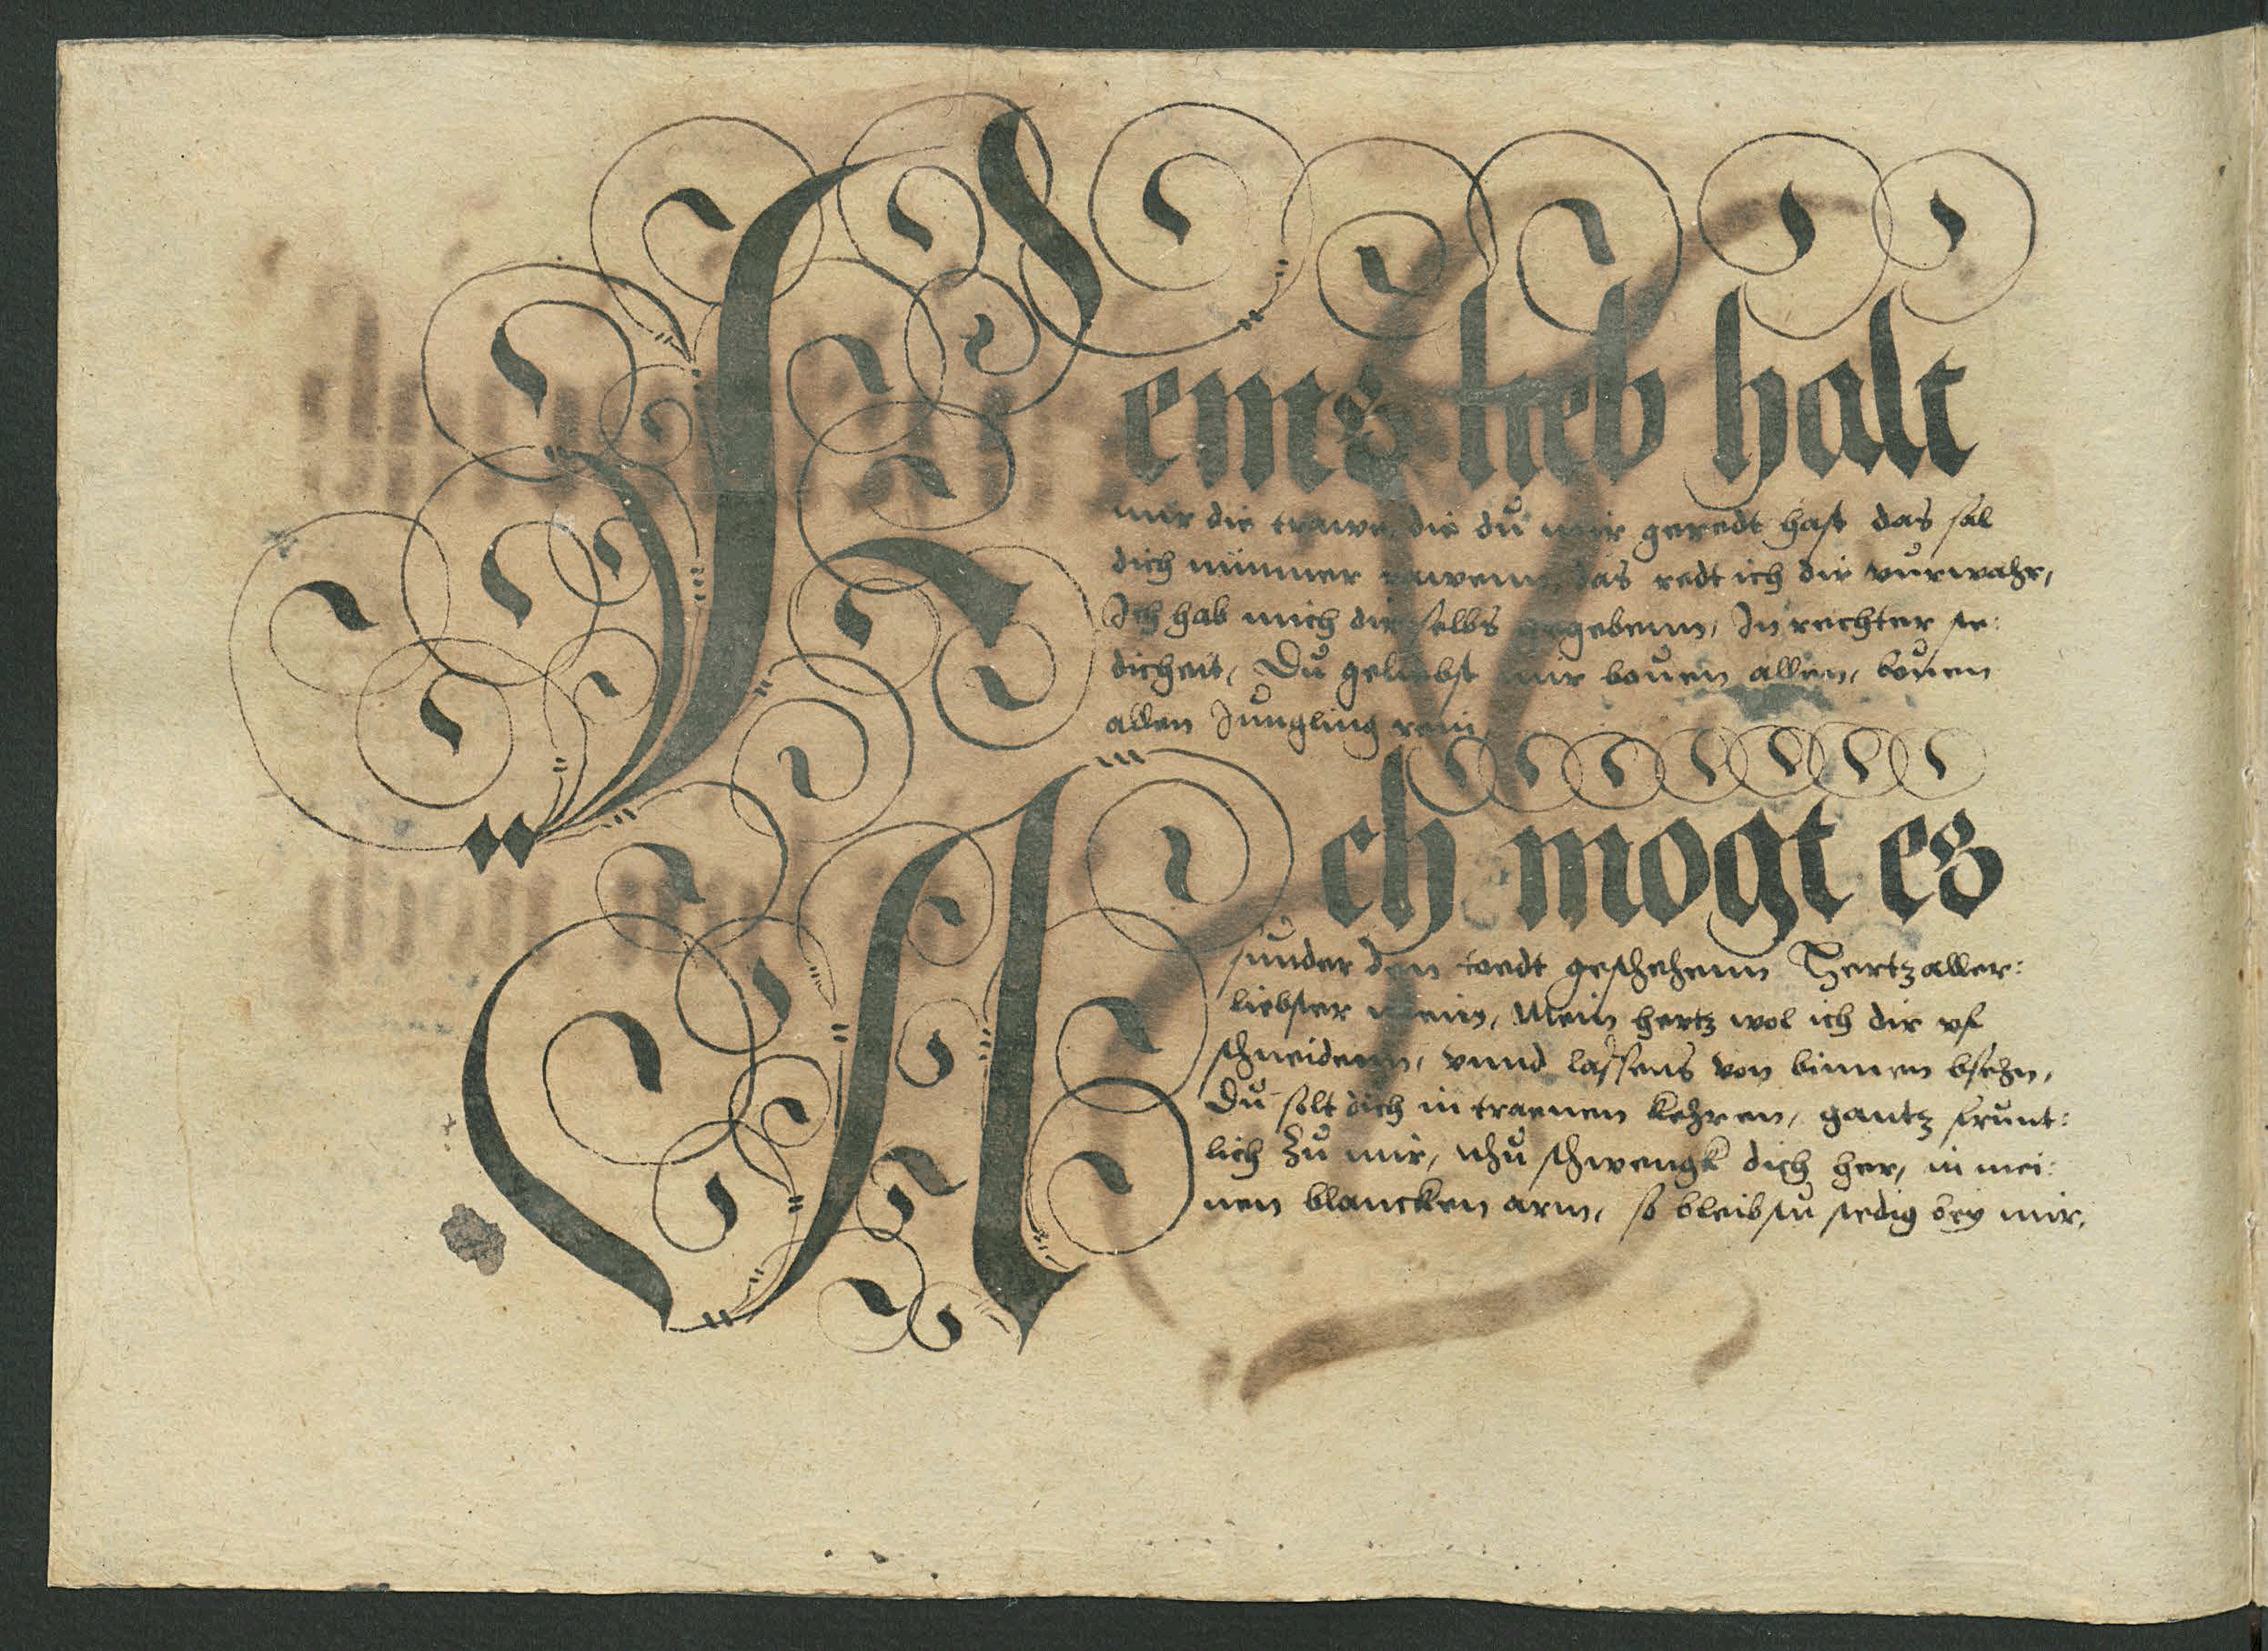 Feins lieb halt
mir die trawe, die du mir geredt hast das sal
dich nimmer rawenn, das redt ich dir vurwahr,
Ich hab mich dir selbs ergebenn, In rechter ste:
dicheit, Du geliebst mir bouen allen, bouen
allen Jungling rein,
Ach mogt es
sunder den toedt geschehenn Hertzaller:
liebster mein, Mein hertz wol ich dir vf
schneidenn, vnnd lassens von binnen bsehn,
Du solt dich in traenen kehren, gantz frunt:
lich zu mir, nhu schwengk dich her, in mei:
nen blancken arm, so bleibstu stedig bey mir,